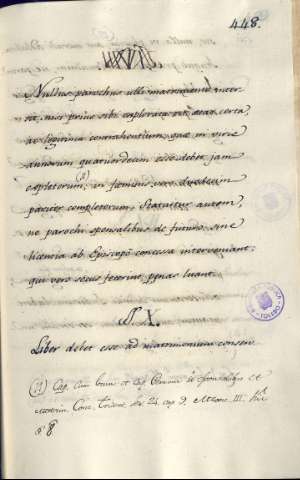 448.
Nullus parochus ulli matrimonio inter
sit, nisi prius sibi explorata sit aetas certa,
ac legitima contrahentium, quae in viris
annorum quatuordecim esse debet jam
expletorum, (1) in foeminis vero duodecim
pariter completorum. Statuitur autem,
ne parochi sponsalibus de futuro, sine
licencia ab Episcopo concessa interveniant:
qui vero secus fecerint, paenas luant.
§. X.
Liber debet esse ad matrimonium consen
(1) Cap. et cap. de sponsalibus et
matrim. Conc. Trident. ses. 24. cap. 9. III.